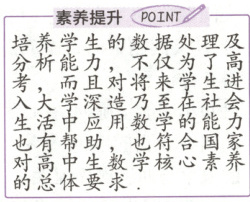 素养提升 POINT
培养学生的数据处理及
分析能力,不仅为了高
考,而且对将来学生进
入大学深造乃至在社会
生活中应用数学的能力
也有帮助,也符合国家
对高中生数学核心素养
的总体要求.